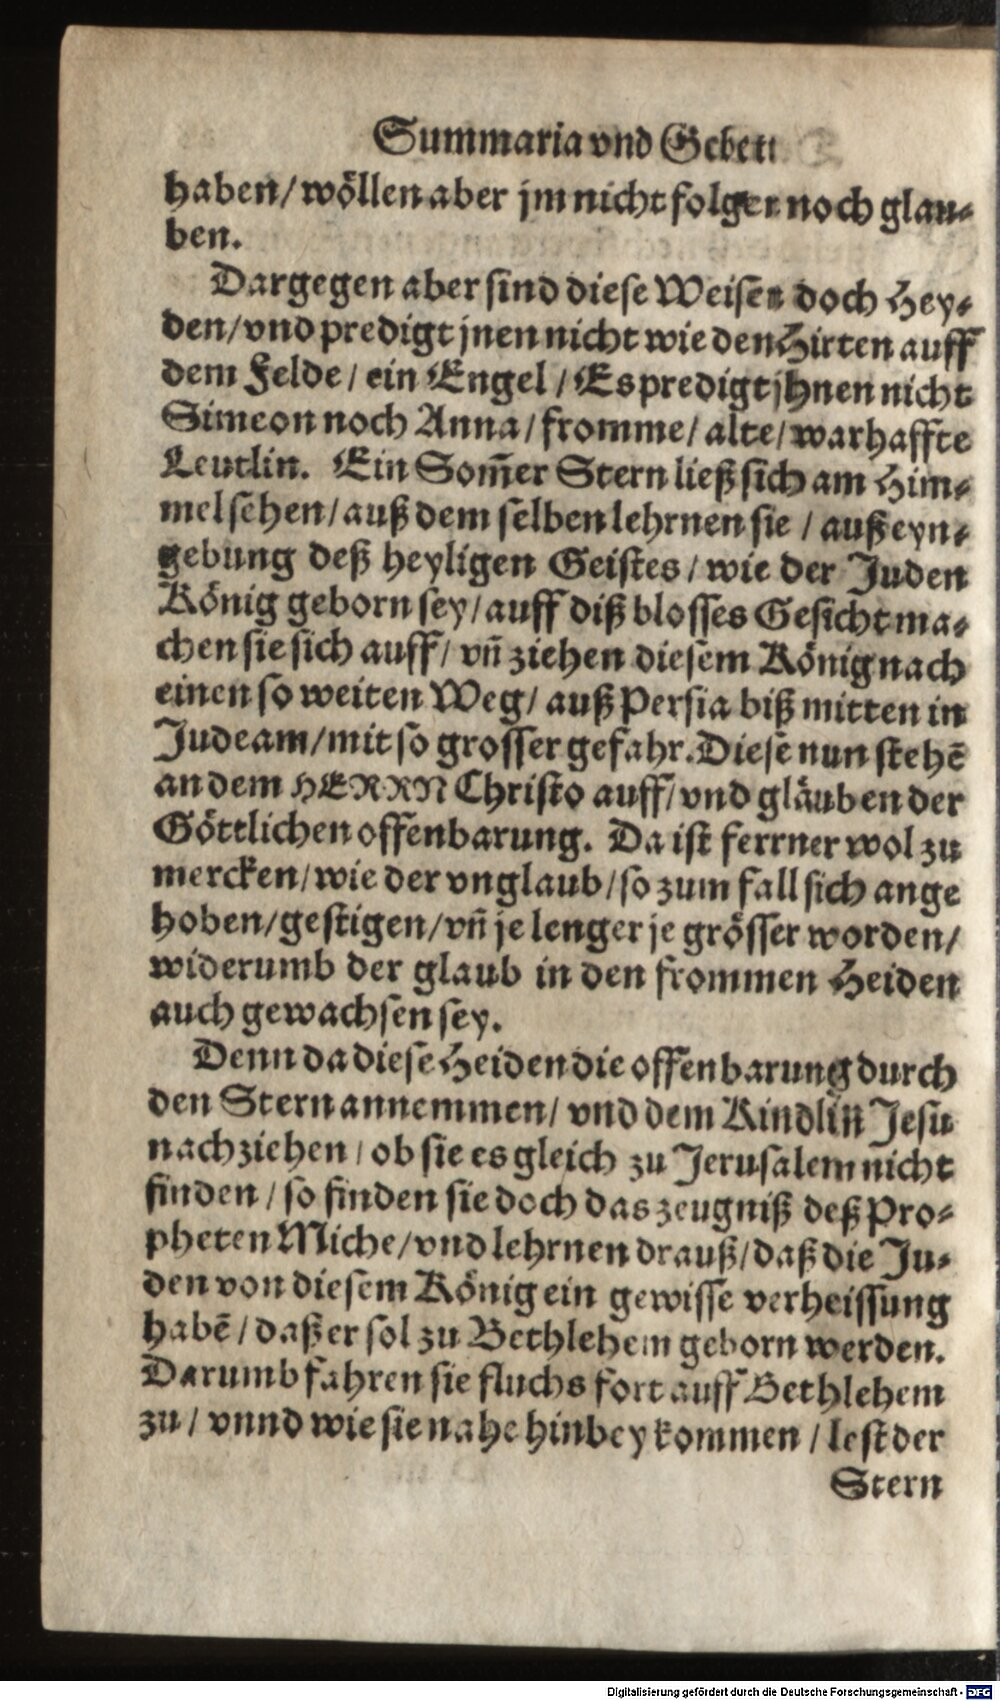 Summaria vnd Gebett
haben/ wöllen aber jm nicht folgen noch glau-
ben.
Dargegen aber sind diese Weisen doch Hey-
den/ vnd predigt jnen nicht wie den Hirten auff
dem Felde/ ein Engel/ Es predigt jhnen nicht
Simeon noch Anna/ fromme/ alte/ warhaffte
Leutlin. Ein Som̄er Stern ließ sich am Him-
mel sehen/ auß dem selben lehrnen sie/ auß eyn-
gebung deß heyligen Geistes/ wie der Juden
König geborn sey/ auff diß blosses Gesicht ma-
chen sie sich auff/ vn̄ ziehen diesem König nach
einen so weiten Weg/ auß Persia biß mitten in
Judeam/ mit so grosser gefahr. Diese nun stehē
an dem HERRN Christo auff/ vnd gläuben der
Göttlichen offenbarung. Da ist ferrner wol zu
mercken/ wie der vnglaub/ so zum fall sich ange
hoben/ gestigen/ vn̄ je lenger je grösser worden/
widerumb der glaub in den frommen Heiden
auch gewachsen sey.
Denn da diese Heiden die offenbarung durch
den Stern annemmen/ vnd dem Kindlin Jesu
nachziehen/ ob sie es gleich zu Jerusalem nicht
finden/ so finden sie doch das zeugniß deß Pro-
pheten Miche/ vnd lehrnen drauß/ daß die Ju-
den von diesem König ein gewisse verheissung
habē/ daß er sol zu Bethlehem geborn werden.
Darumb fahren sie fluchs fort auff Bethlehem
zu/ vnnd wie sie nahe hinbey kommen/ lest der
Stern
Digitalisierung gefördert durch die Deutsche Forschungsgemeinschaft - DFG